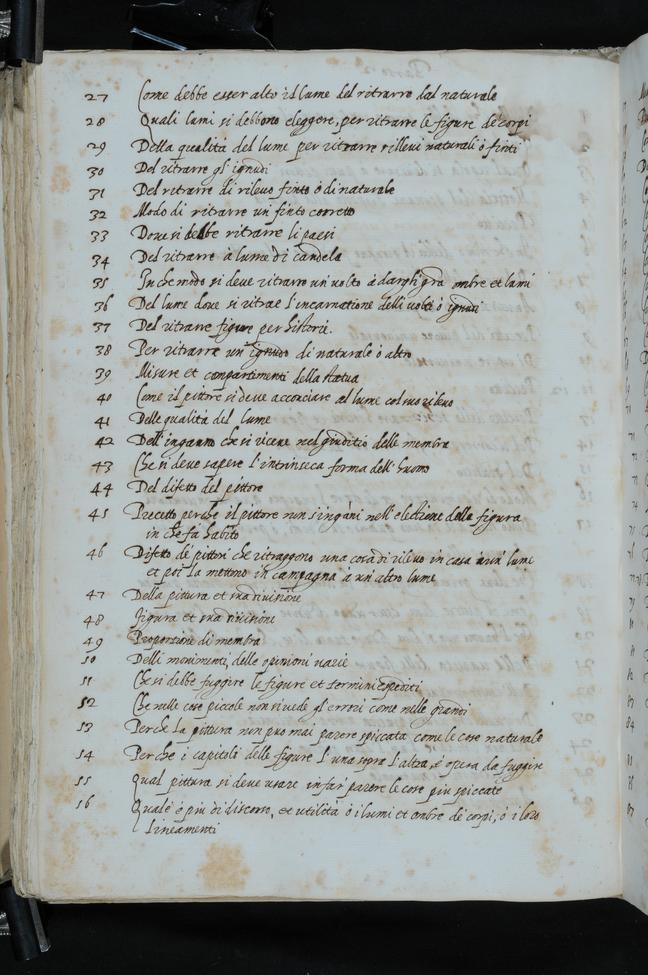 27 Come debbe esser alto il lume del ritrarre dal naturale
28 Quali lumi si debbono eleggere, per ritrarre le figure de corpi
29 Della qualità del lume per ritrarre rilievi naturali ò finti
30 Del ritrarre gli ignudi
31 Del ritrarre di rilevo finto ò di naturale
32 Modo di ritrarre un finto corretto
33 Dove si debbe ritrarre li paesi
34 Del ritrarre à lume di candela
35 In che modo si deve ritrarre un volto à dargli grã ombre et lumi
36 Del lume dove si ritrae l'incarnatione delli volti ò ignudi
37 Del ritrarre figure per historie.
38 Per ritrarre un' ignudo di naturale ò altro
39 Misure et compartimenti della statua
40 Come il pittore si deve acconciare al lume col suo rilevo
41 Delle qualità del lume
42 Dell' inganno che si riceve nel giuditio delle membra
43 Che si deve sapere l'intrinseca forma dell' huomo
44 Del difetto del pittore
45 Precetto perche il pittore non s'ingani nell'elettione della figura
in che fa habito
46 Difetto de' pittori che ritraggono una cosa di rilevo in casa à un' lume
et poi la mettono in campagna à un' altro lume
47 Della pittura et sua divisione
48 Figura et sua divisione
49 Proportione di membra
50 Delli movimenti, delle openioni varie
51 Che si debbe fuggire le figure et termini espediti
52 Che nelle cose piccole non si vede gli errori come nelle grandi
53 Perche la pittura non puo mai parere spiccata come le cose naturale
54 Perche i capitoli delle figure l'una sopra l'altra, è opera da fuggire
55 Qual pittura si deve usare in far parere le cose piu spiccate
56 Quale è piu di discorso, et utilità ò i lumi et ombre de' corpi, ò i loro
lineamenti